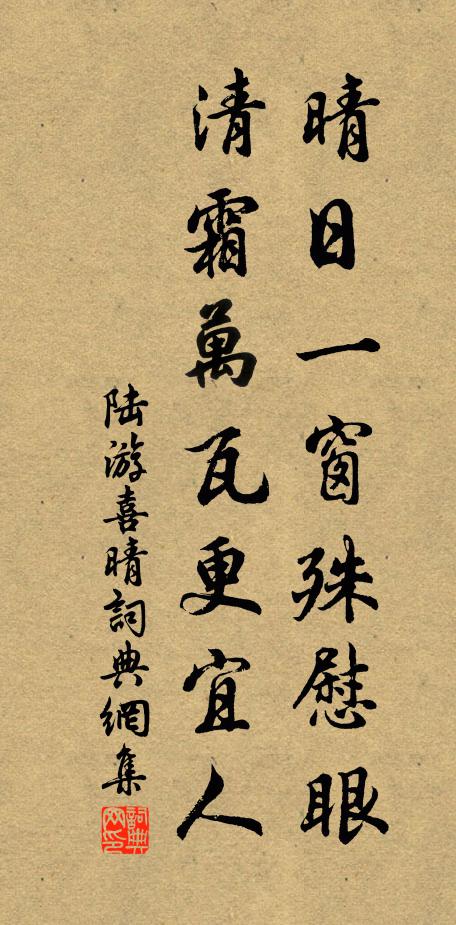 晴日一窗殊慰眼
清霜萬瓦更宜人
陆游喜晴詞典網集
詞典網印